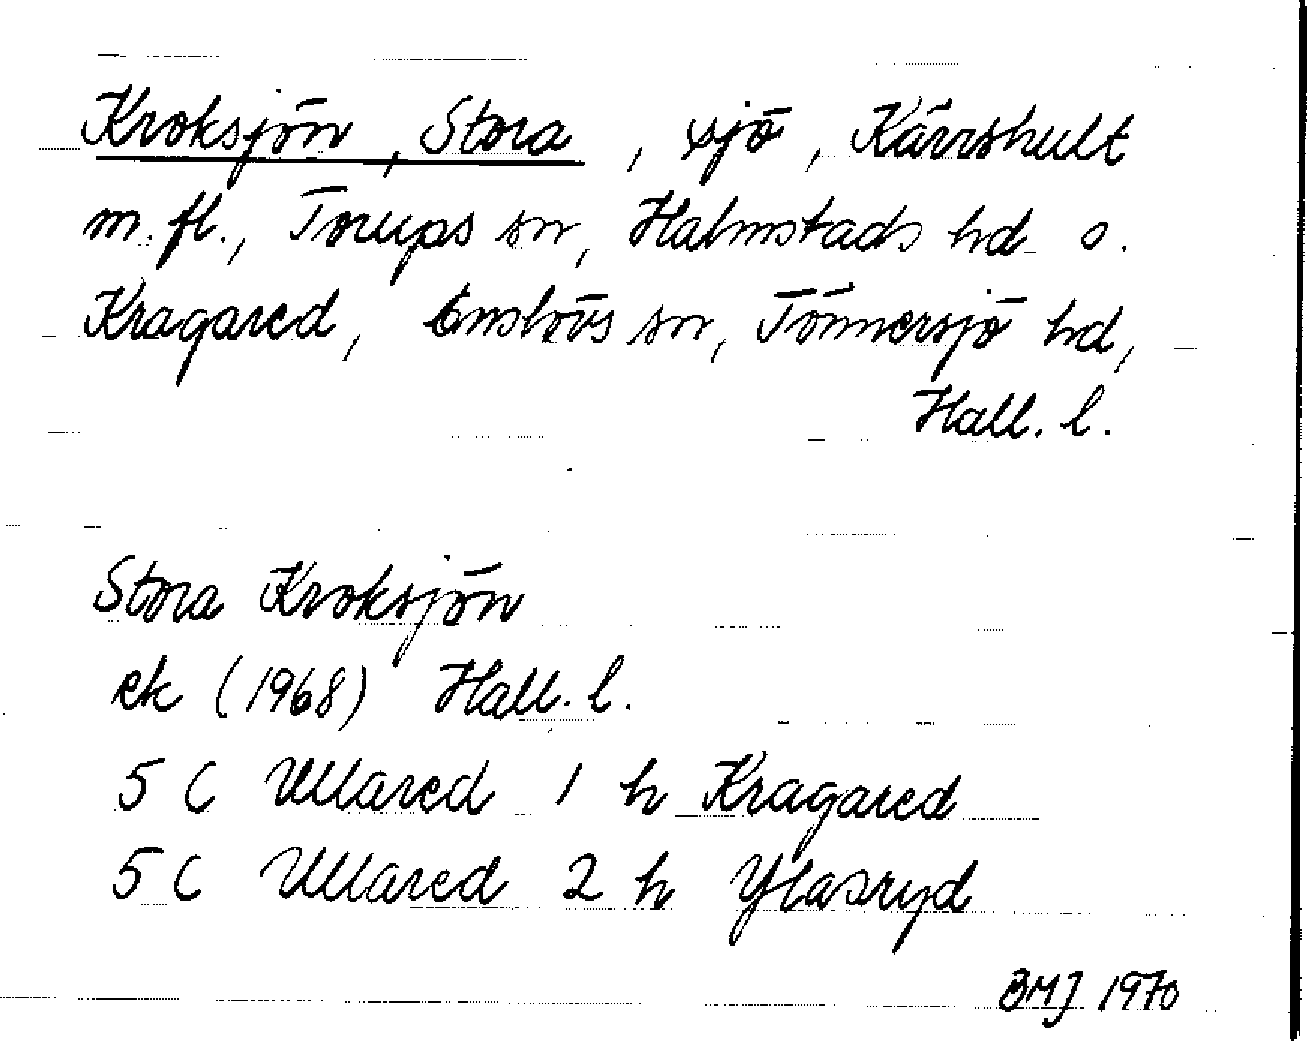 Kroksjön, Stora, sjö, Kärrshult
m.fl., Torups sn, Halmstads hd o.
Kragared, Enslövs sn, Tönnersjö hd,
Hall. l.
Stora Kroksjön
ek (1968) Hall. l.
5 C Ullared 1 h Kragared
5 C Ullared 2 h Ylasryd
BMJ 1970